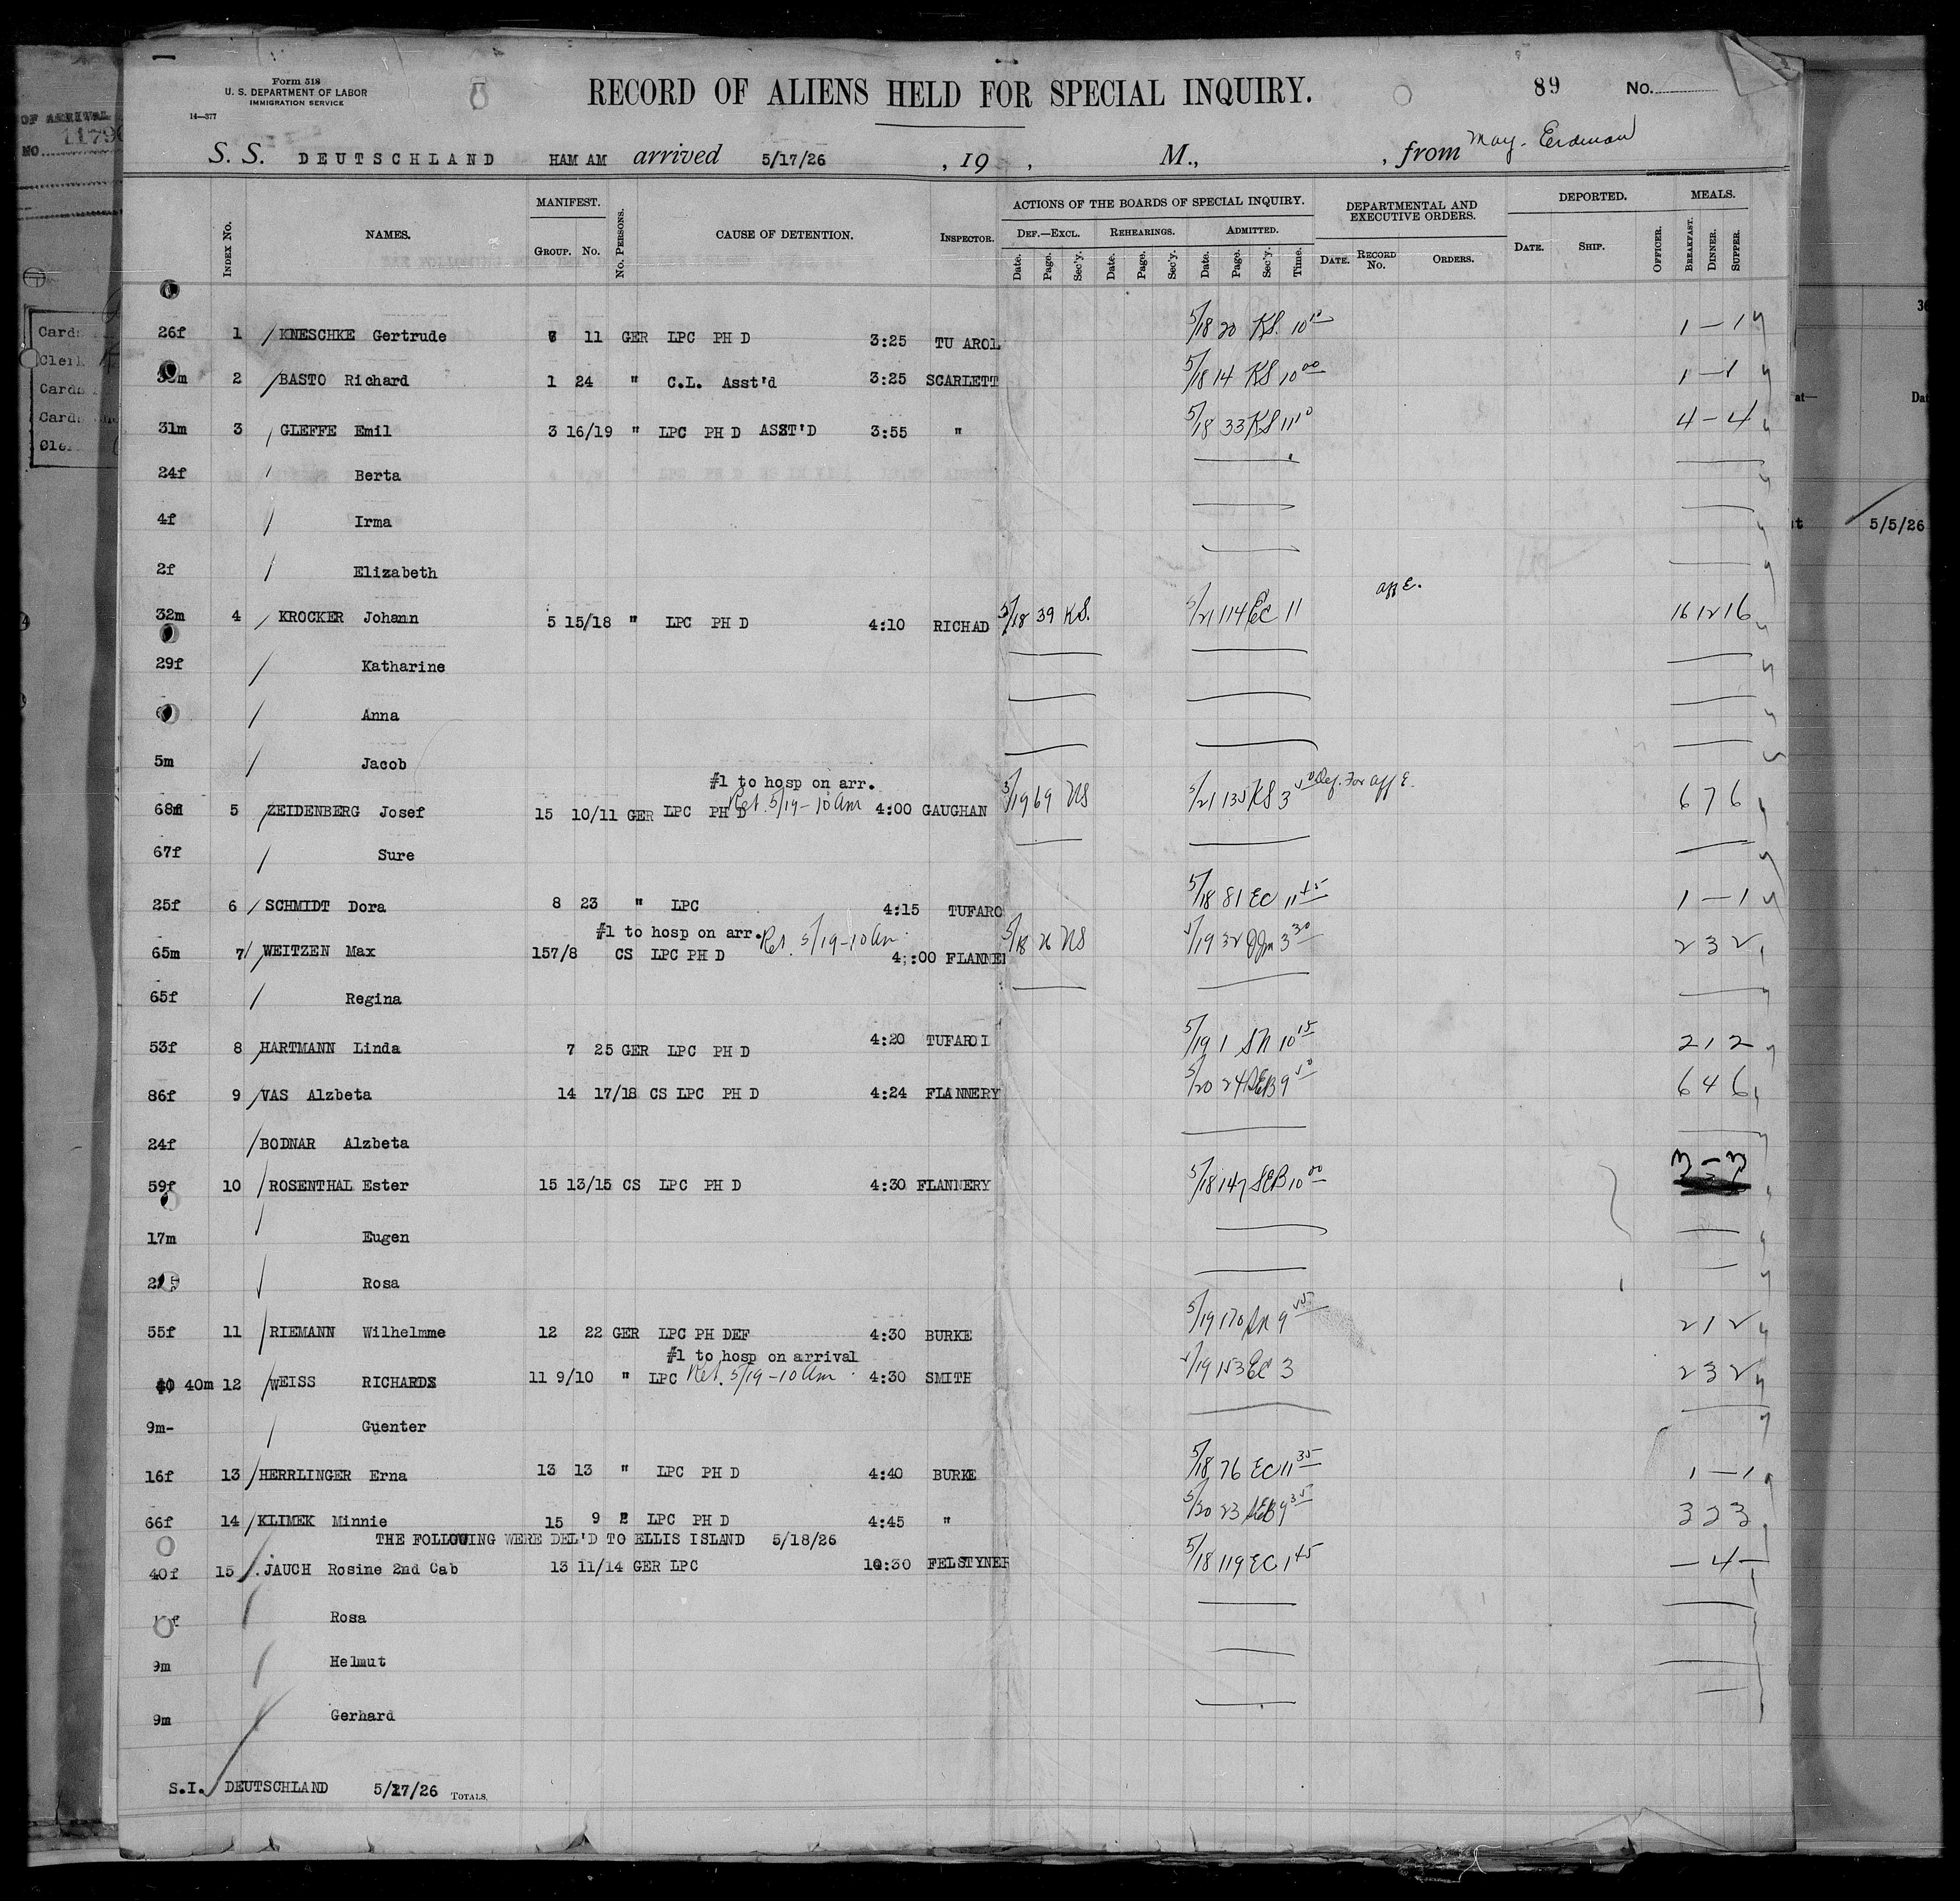 Form 518
U. S. DEPARTMENT OF LABOR
IMMIGRATION SERVICE
14—377
RECORD OF ALIENS HELD FOR SPECIAL INQUIRY.
89 No.
OF ARRIVAL
NO
S. S. DEUTSCHLAND HAM AM arrived 5/17/26 , 19 , M., , from May. Erdman
INDEX No. NAMES. MANIFEST. GROUP. No. No. PERSONS. CAUSE OF DETENTION. INSPECTOR. ACTIONS OF THE BOARDS OF SPECIAL INQUIRY. DEPARTMENTAL AND EXECUTIVE ORDERS. DEPORTED. MEALS.
DEF.—EXCL. REHEARINGS. ADMITTED.
Date. Page. Sec'y. Date. Page. Sec'y. Date. Page. Sec'y. Time. DATE. RECORD No. ORDERS. DATE. SHIP. OFFICER. BREAKFAST. DINNER. SUPPER.
26f 1 / KNESCHKE Gertrude 11 GER LPC PH D 3:25 TU AROL 5/18 20 KS. 10 10 1 — 1
2 / BASTO Richard 1 24 " C.L. Asst'd 3:25 SCARLETT 5/18 14 KS 10 00 1 — 1
31m 3 / GLEFFE Emil 3 16/19 " LPC PH D ASST'D 3:55 " 5/18 33 KS 11 10 4 — 4
24f / Berta
4f / Irma
2f / Elizabeth
aff E.
32m 4 / KROCKER Johann 5 15/18 " LPC PH D 4:10 RICHAD 5/18 39 KS. 5/21 114 EC 11 16 12 16
29f / Katharine
/ Anna
5m / Jacob
#1 to hosp on arr.
68m 5 /ZEIDENBERG Josef 15 10/11 GER LPC PH D Ret. 5/19 - 10 am 4:00 GAUGHAN 5/19 69 NS 5/21 135 KS 3 Def. For aff E. 6 7 6
67f / Sure
25f 6 / SCHMIDT Dora 8 23 " LPC 4:15 TUFARO 5/18 81 EC 11 45 1 — 1
#1 to hosp on arr. Ret. 5/19 - 10 am
65m 7/ /WEITZEN Max 157/8 CS LPC PH D 4;:00 FLANNE 5/18 26 NS 5/19 32 3 30 2 3 2
65f / Regina
53f 8 /HARTMANN Linda 7 25 GER LPC PH D 4:20 TUFARO I 5/19 1 SN 10 15 2 1 2
86f 9 /VAS Alzbeta 14 17/18 CS LPC PH D 4:24 FLANNERY 5/20 24 SEB 9 50 6 4 6
24f /BODNAR Alzbeta
59f 10 /ROSENTHAL Ester 15 13/15 CS LPC PH D 4:30 FLANNERY 5/18 147 SEB 10 00 3 — 3
17m / Eugen
/ Rosa
55f 11 /RIEMANN Wilhelmme 12 22 GER LPC PH DEF 4:30 BURKE 5/19 170 SN 9 55 2 1 2
#1 to hosp on arrival
40m 12 /WEISS RICHARD 11 9/10 " LPC Ret. 5/19 - 10 am 4:30 SMITH 5/19 153 EC 3 2 3 2
9m- / Guenter
16f 13 /HERRLINGER Erna 13 13 " LPC PH D 4:40 BURKE 5/18 76 EC 11 35 1 — 1
66f 14 /KLIMEK Minnie 15 9 LPC PH D 4:45 " 5/20 23 SEB 9 35 3 2 3
THE FOLLOWING WERE DEL'D TO ELLIS ISLAND 5/18/26
40f 15 /.JAUCH Rosine 2nd Cab 13 11/14 GER LPC 10:30 FELSTYNER 5/18 119 EC 1 45 — 4 —
Rosa
9m Helmut
9m Gerhard
S.I. DEUTSCHLAND 5/17/26 TOTALS.
Card
Clerk
Card
Card
Cle
at—
Dat
5/5/26